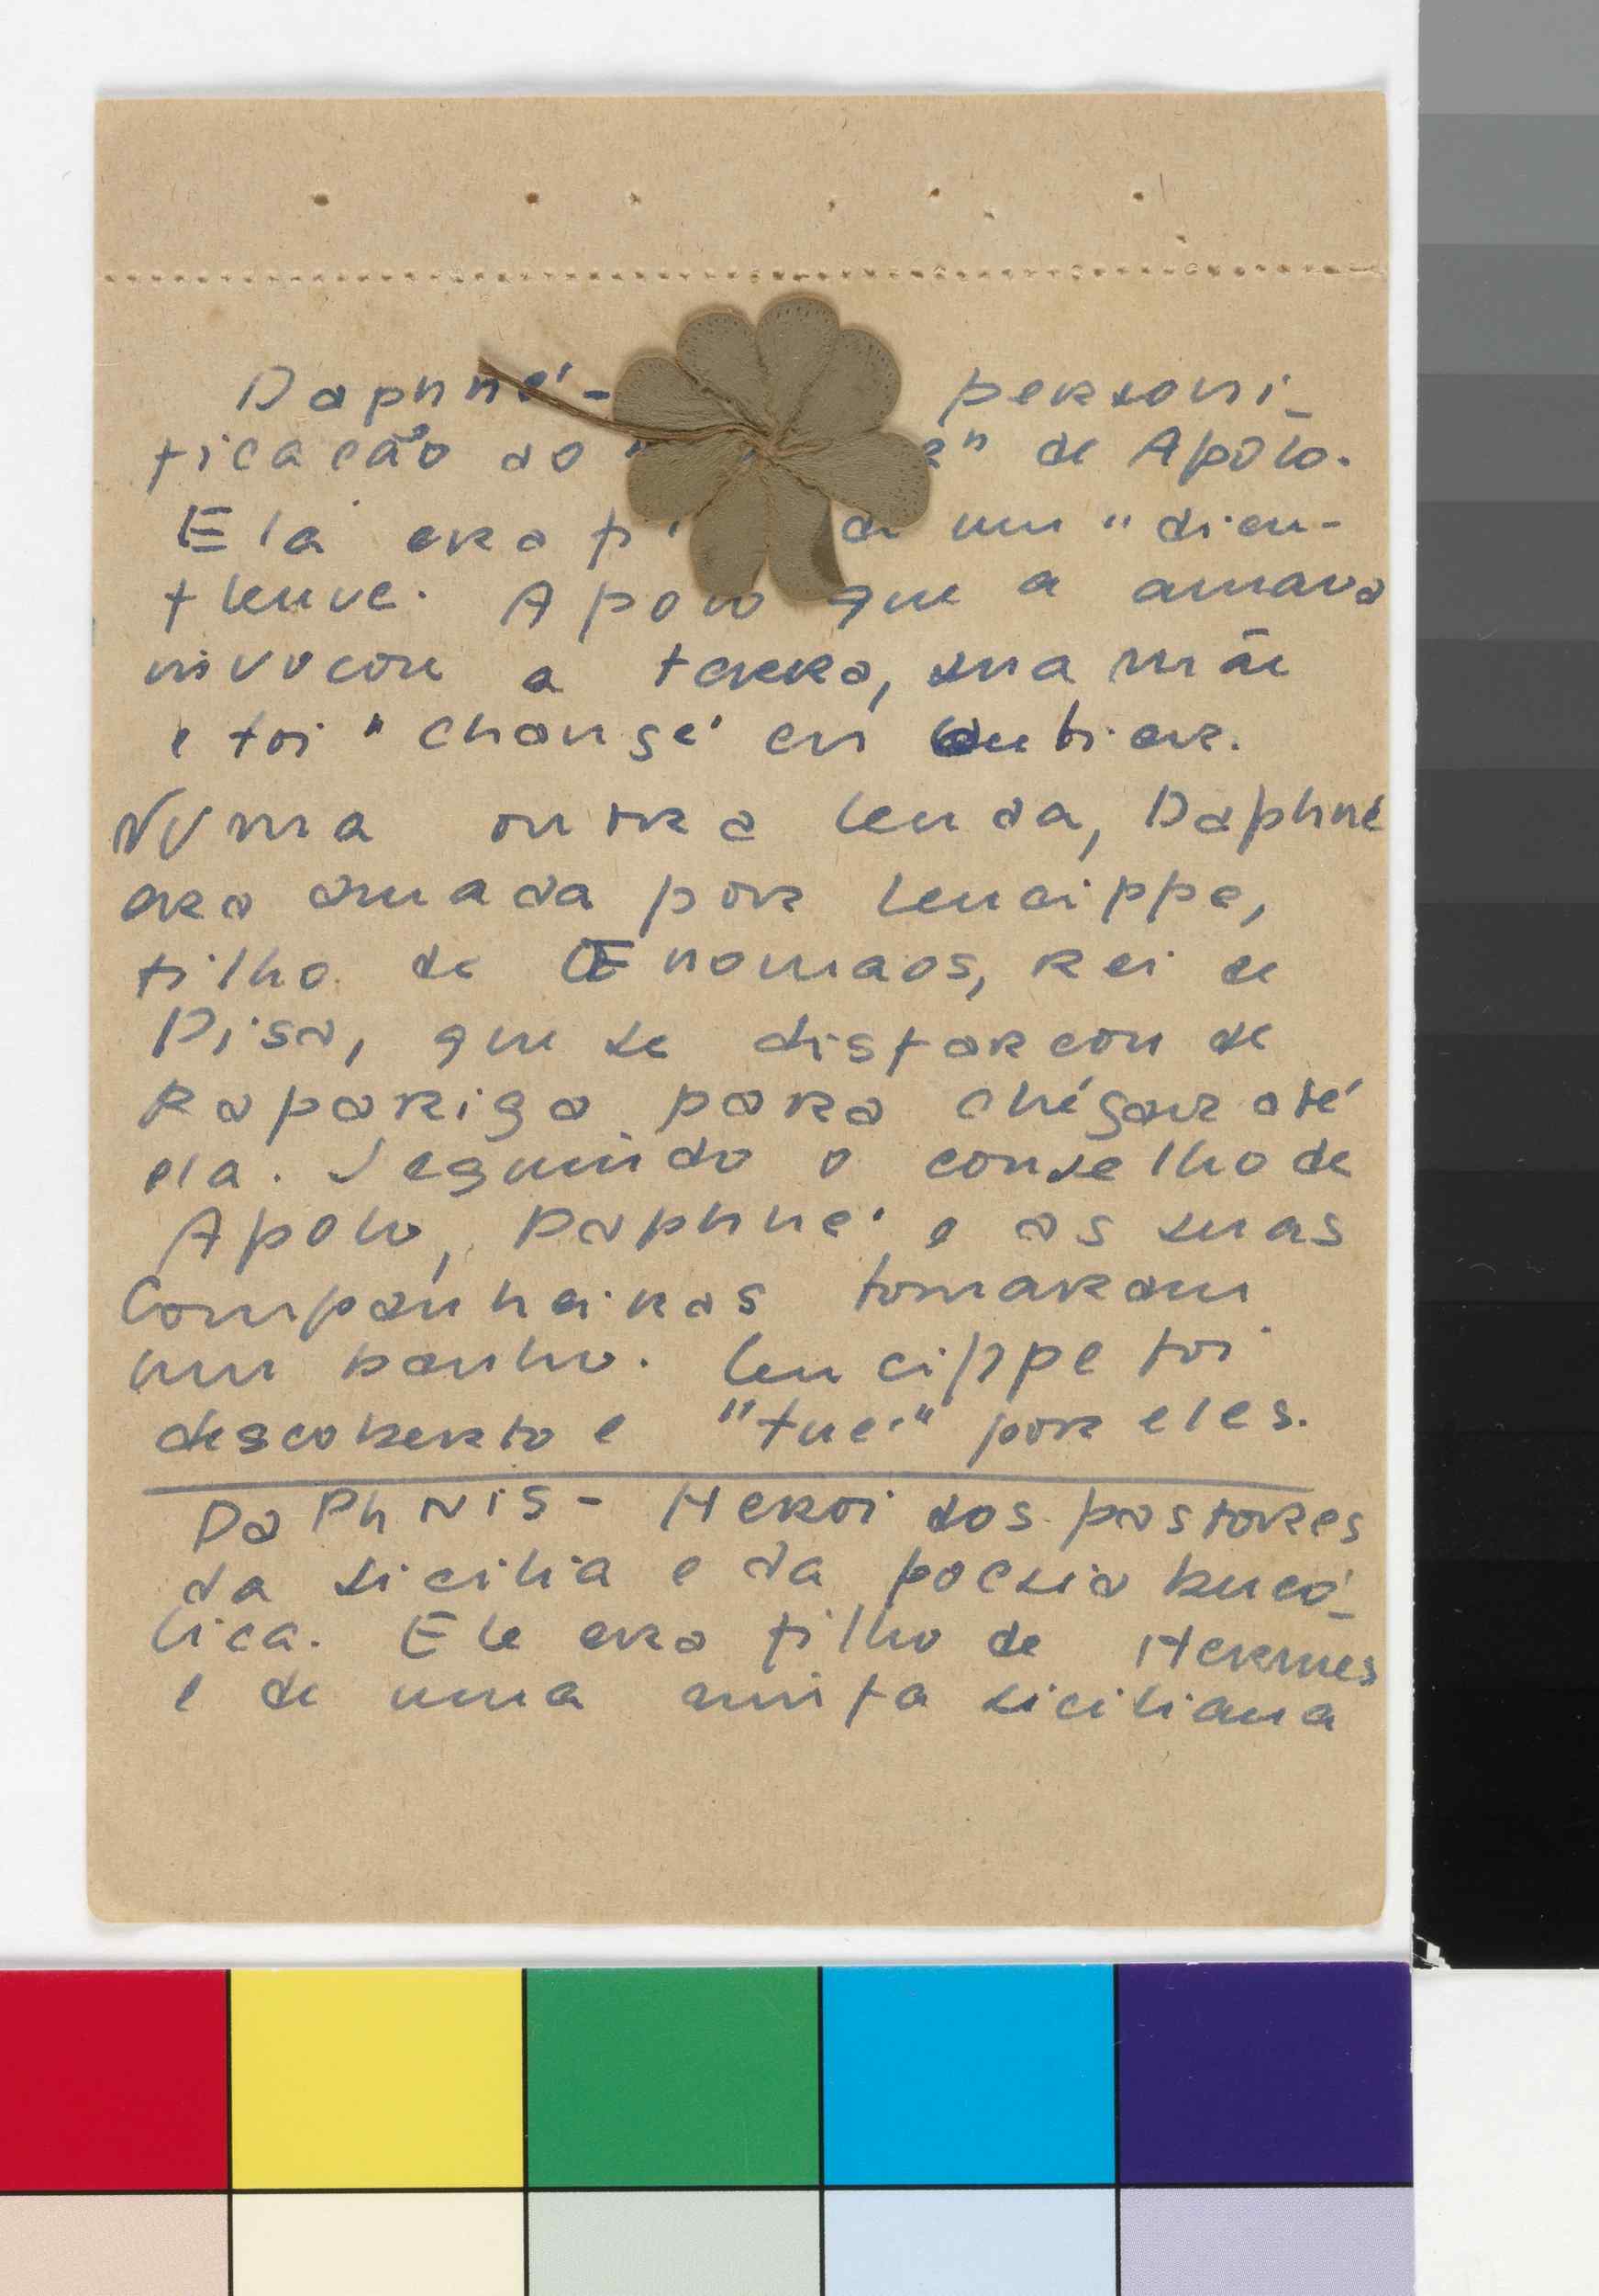 Daphné - personi-
ficação do " " de Apolo.
Ela era de um "dieu-
fleuve. Apolo que a amava
invocou a terra, sua mãe
e foi "changé" en
Numa outra lenda, Daphné
era amada por Leucippe,
filho de Œnomaos, rei de
Pisa, que se disfarcou de
Rapariga para chégar até
ela. Seguindo o conselho de
Apolo, Daphné e as suas
Companheiras tomaram
um banho. Leucippe foi
descoberto e "tué" por eles.
DaPhNiS - Heroi dos pastores
da Sicilia e da poesia bucó-
lica. Ele era filho de Hermes
e de uma siciliana